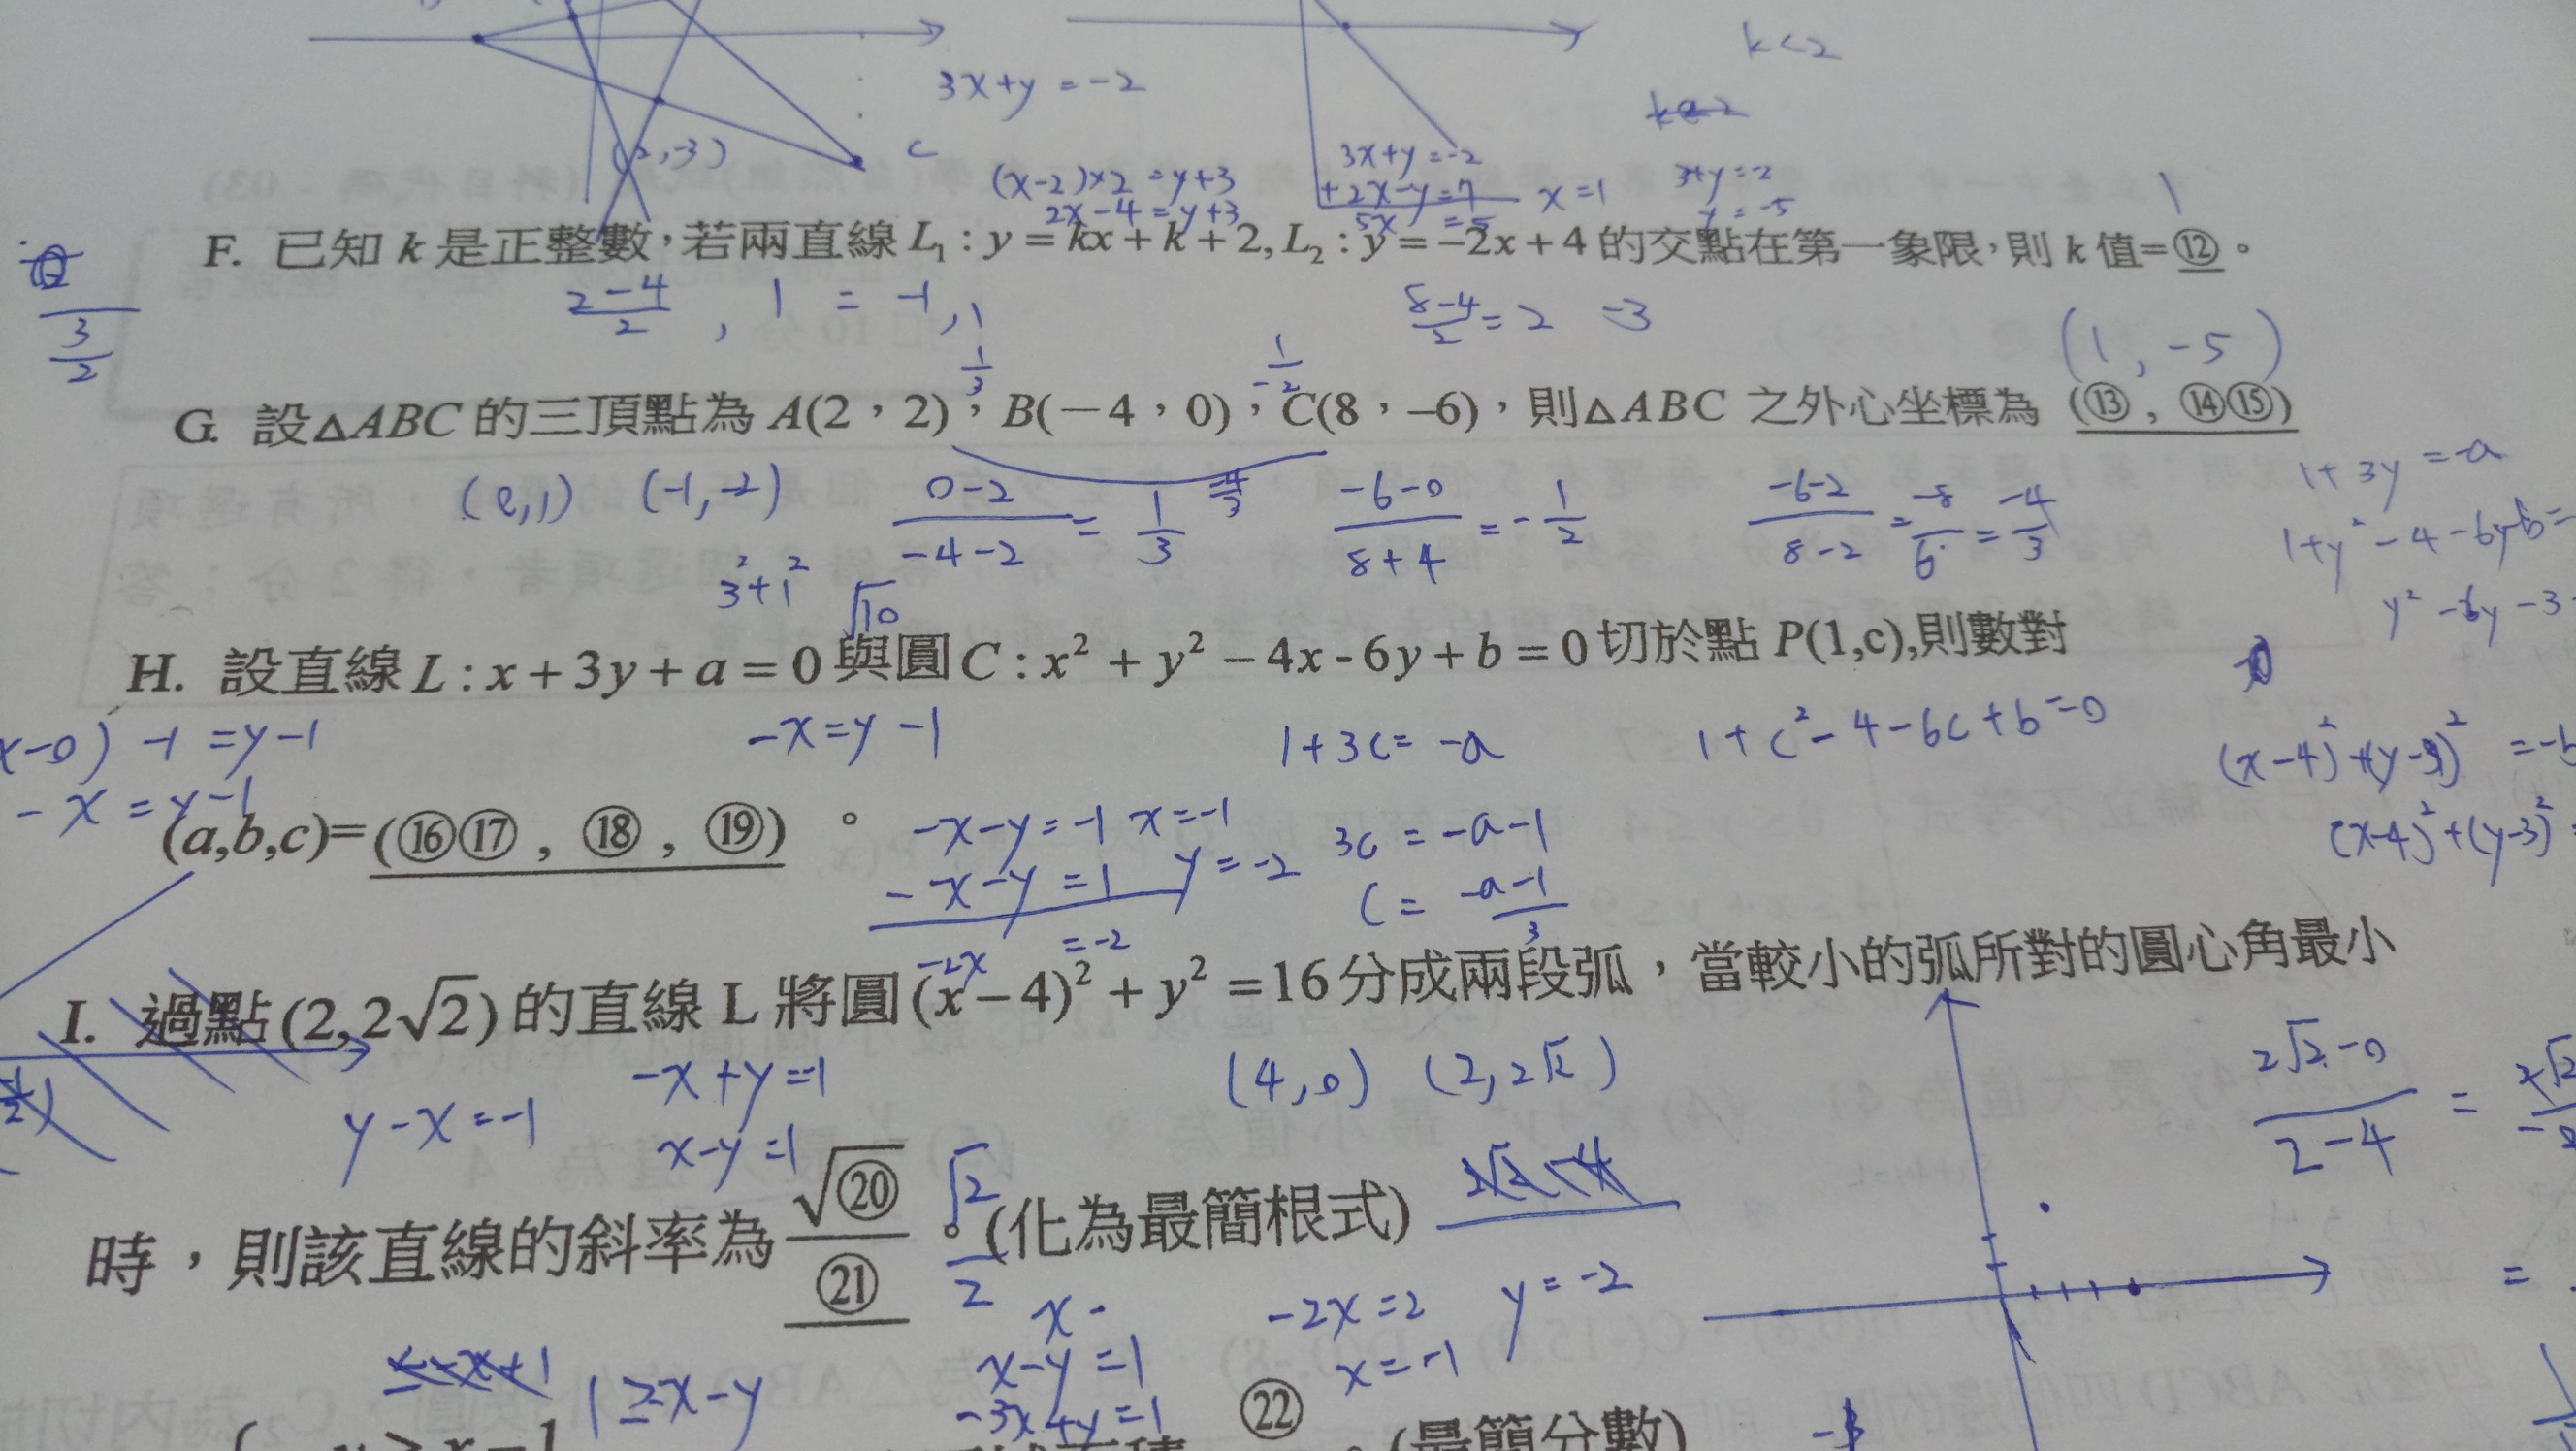 k<2
3x+y=-2
(2,-3)
C
(x-2)×2=y+3
2x-4=y+3
3x+y=-2
+2x-y=7
5x =5
x=1
3+y=-2
y=-5
1
F. 已知 k 是正整數,若兩直線 L₁ : y = kx + k + 2, L₂ : y = -2x + 4 的交點在第一象限,則 k 值=⑫。
3/2
(2-4)/2 , 1 = -1, 1
(8-4)/2 = 2 -3
(1, -5)
1/3
1/-2
G. 設△ABC 的三頂點為 A(2,2),B(-4,0),C(8,-6),則△ABC 之外心坐標為 (⑬, ⑭⑮)
(-1,-2)
(0-2)/(-4-2) = 1/3
-4/3
(-6-0)/(8+4) = -1/2
(-6-2)/(8-2) = -8/6 = -4/3
1+3y=-a
3²+1²
√10
H. 設直線 L : x + 3y + a = 0 與圓 C : x² + y² - 4x - 6y + b = 0 切於點 P(1,c),則數對
-1=y-1
-x=y-1
1+3c=-a
1+c²-4-6c+b=0
-x=y-1
(a,b,c)=(⑯⑰, ⑱, ⑲)。
-x-y=-1 x=-1
-x-y=1 y=-2
-2x =-2
3c=-a-1
c=(-a-1)/3
(x-4)²+(y-3)²
I. 過點(2, 2√2)的直線 L 將圓(x-4)² + y² = 16 分成兩段弧,當較小的弧所對的圓心角最小
y-x=-1
-x+y=-1
x-y=1
(4,0) (2,2√2)
(2√2-0)/(2-4) =
時,則該直線的斜率為 √⑳/㉑。(化為最簡根式)
√2/2
-2x=2 y=-2
x=-1
1≥x-y
x-y=1
-3x+y=1
㉒
(最簡分數)